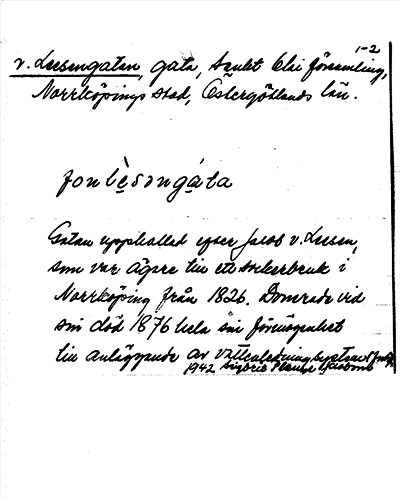 1-2
v. Leesengatan, gata, Sankt Olai församling,
Norrköpings stad, Östergötlands län.
fonlèsəngáta
Gatan uppkallad efter Jacob v. Leesen,
som var ägare till ett sockerbruk i
Norrköping från 1826. Donerade vid
sin död 1876 hela sin förmögenhet
till anläggande av vattenledningssystemet
1942